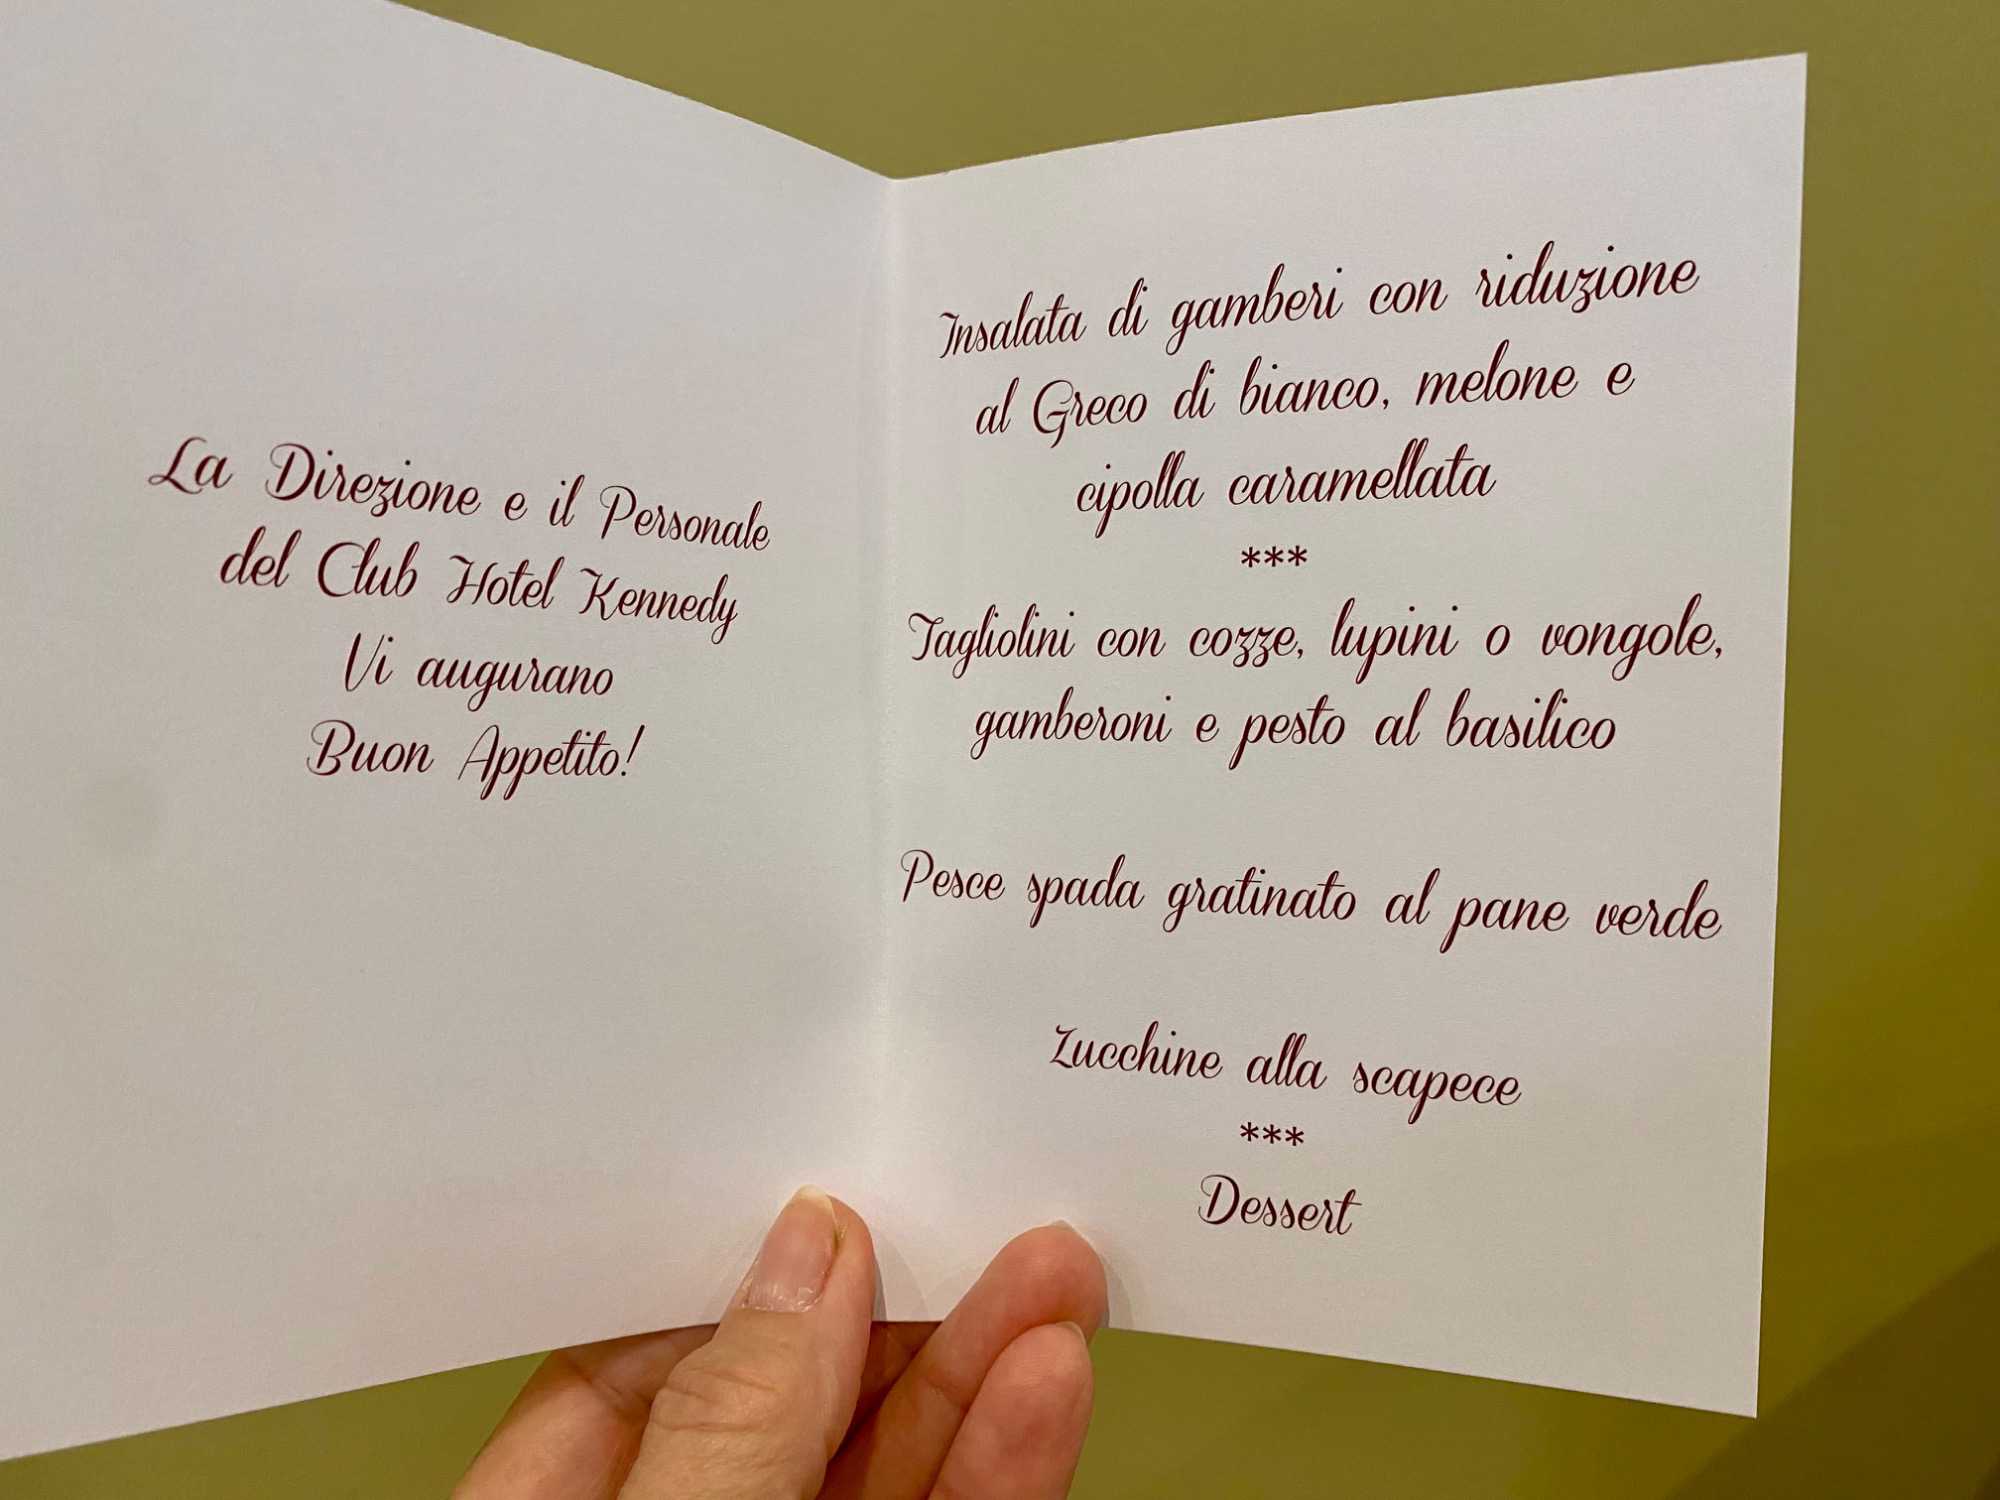 La Direzione e il Personale
del Club Hotel Kennedy
Vi augurano
Buon Appetito!
Insalata di gamberi con riduzione
al Greco di bianco, melone e
cipolla caramellata
***
Tagliolini con cozze, lupini o vongole,
gamberoni e pesto al basilico
Pesce spada gratinato al pane verde
Zucchine alla scapece
***
Dessert